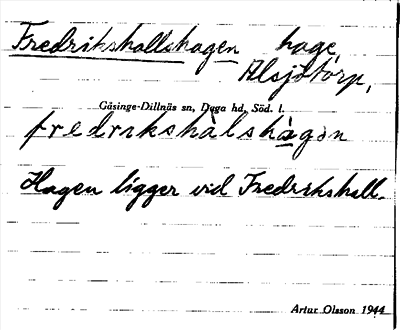 Fredrikshallshagen hage,
Alsjötorp,
Gåsinge-Dillnäs sn, Daga hd, Söd. l.
fredrikshàlshàgən
Hagen ligger vid Fredrikshall.
Artur Olsson 1944